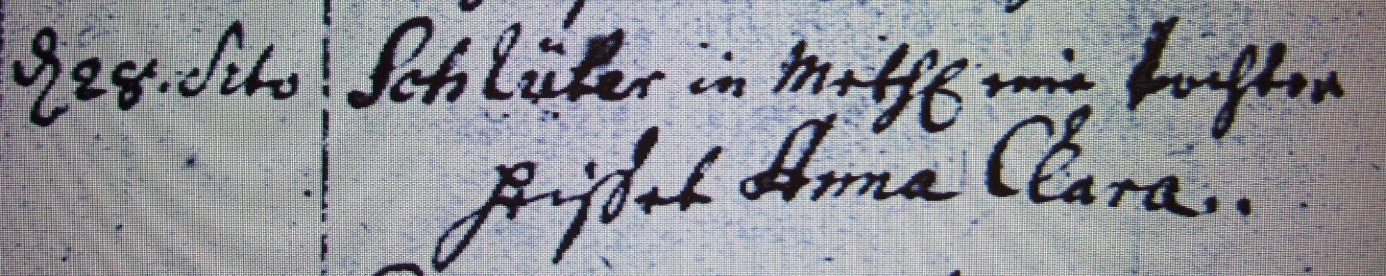 d 28. dito Schlüter in Methl. eine tochter
heißet Anna Clara..